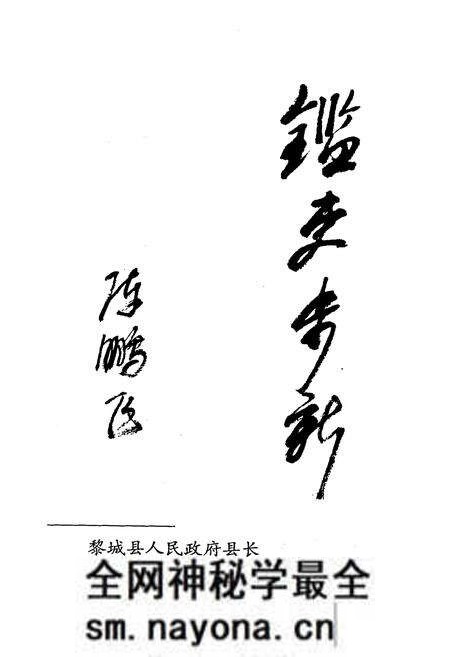 鑑史新
陈鹏飞
黎城县人民政府县长
全网神秘学最全
sm.nayona.cn